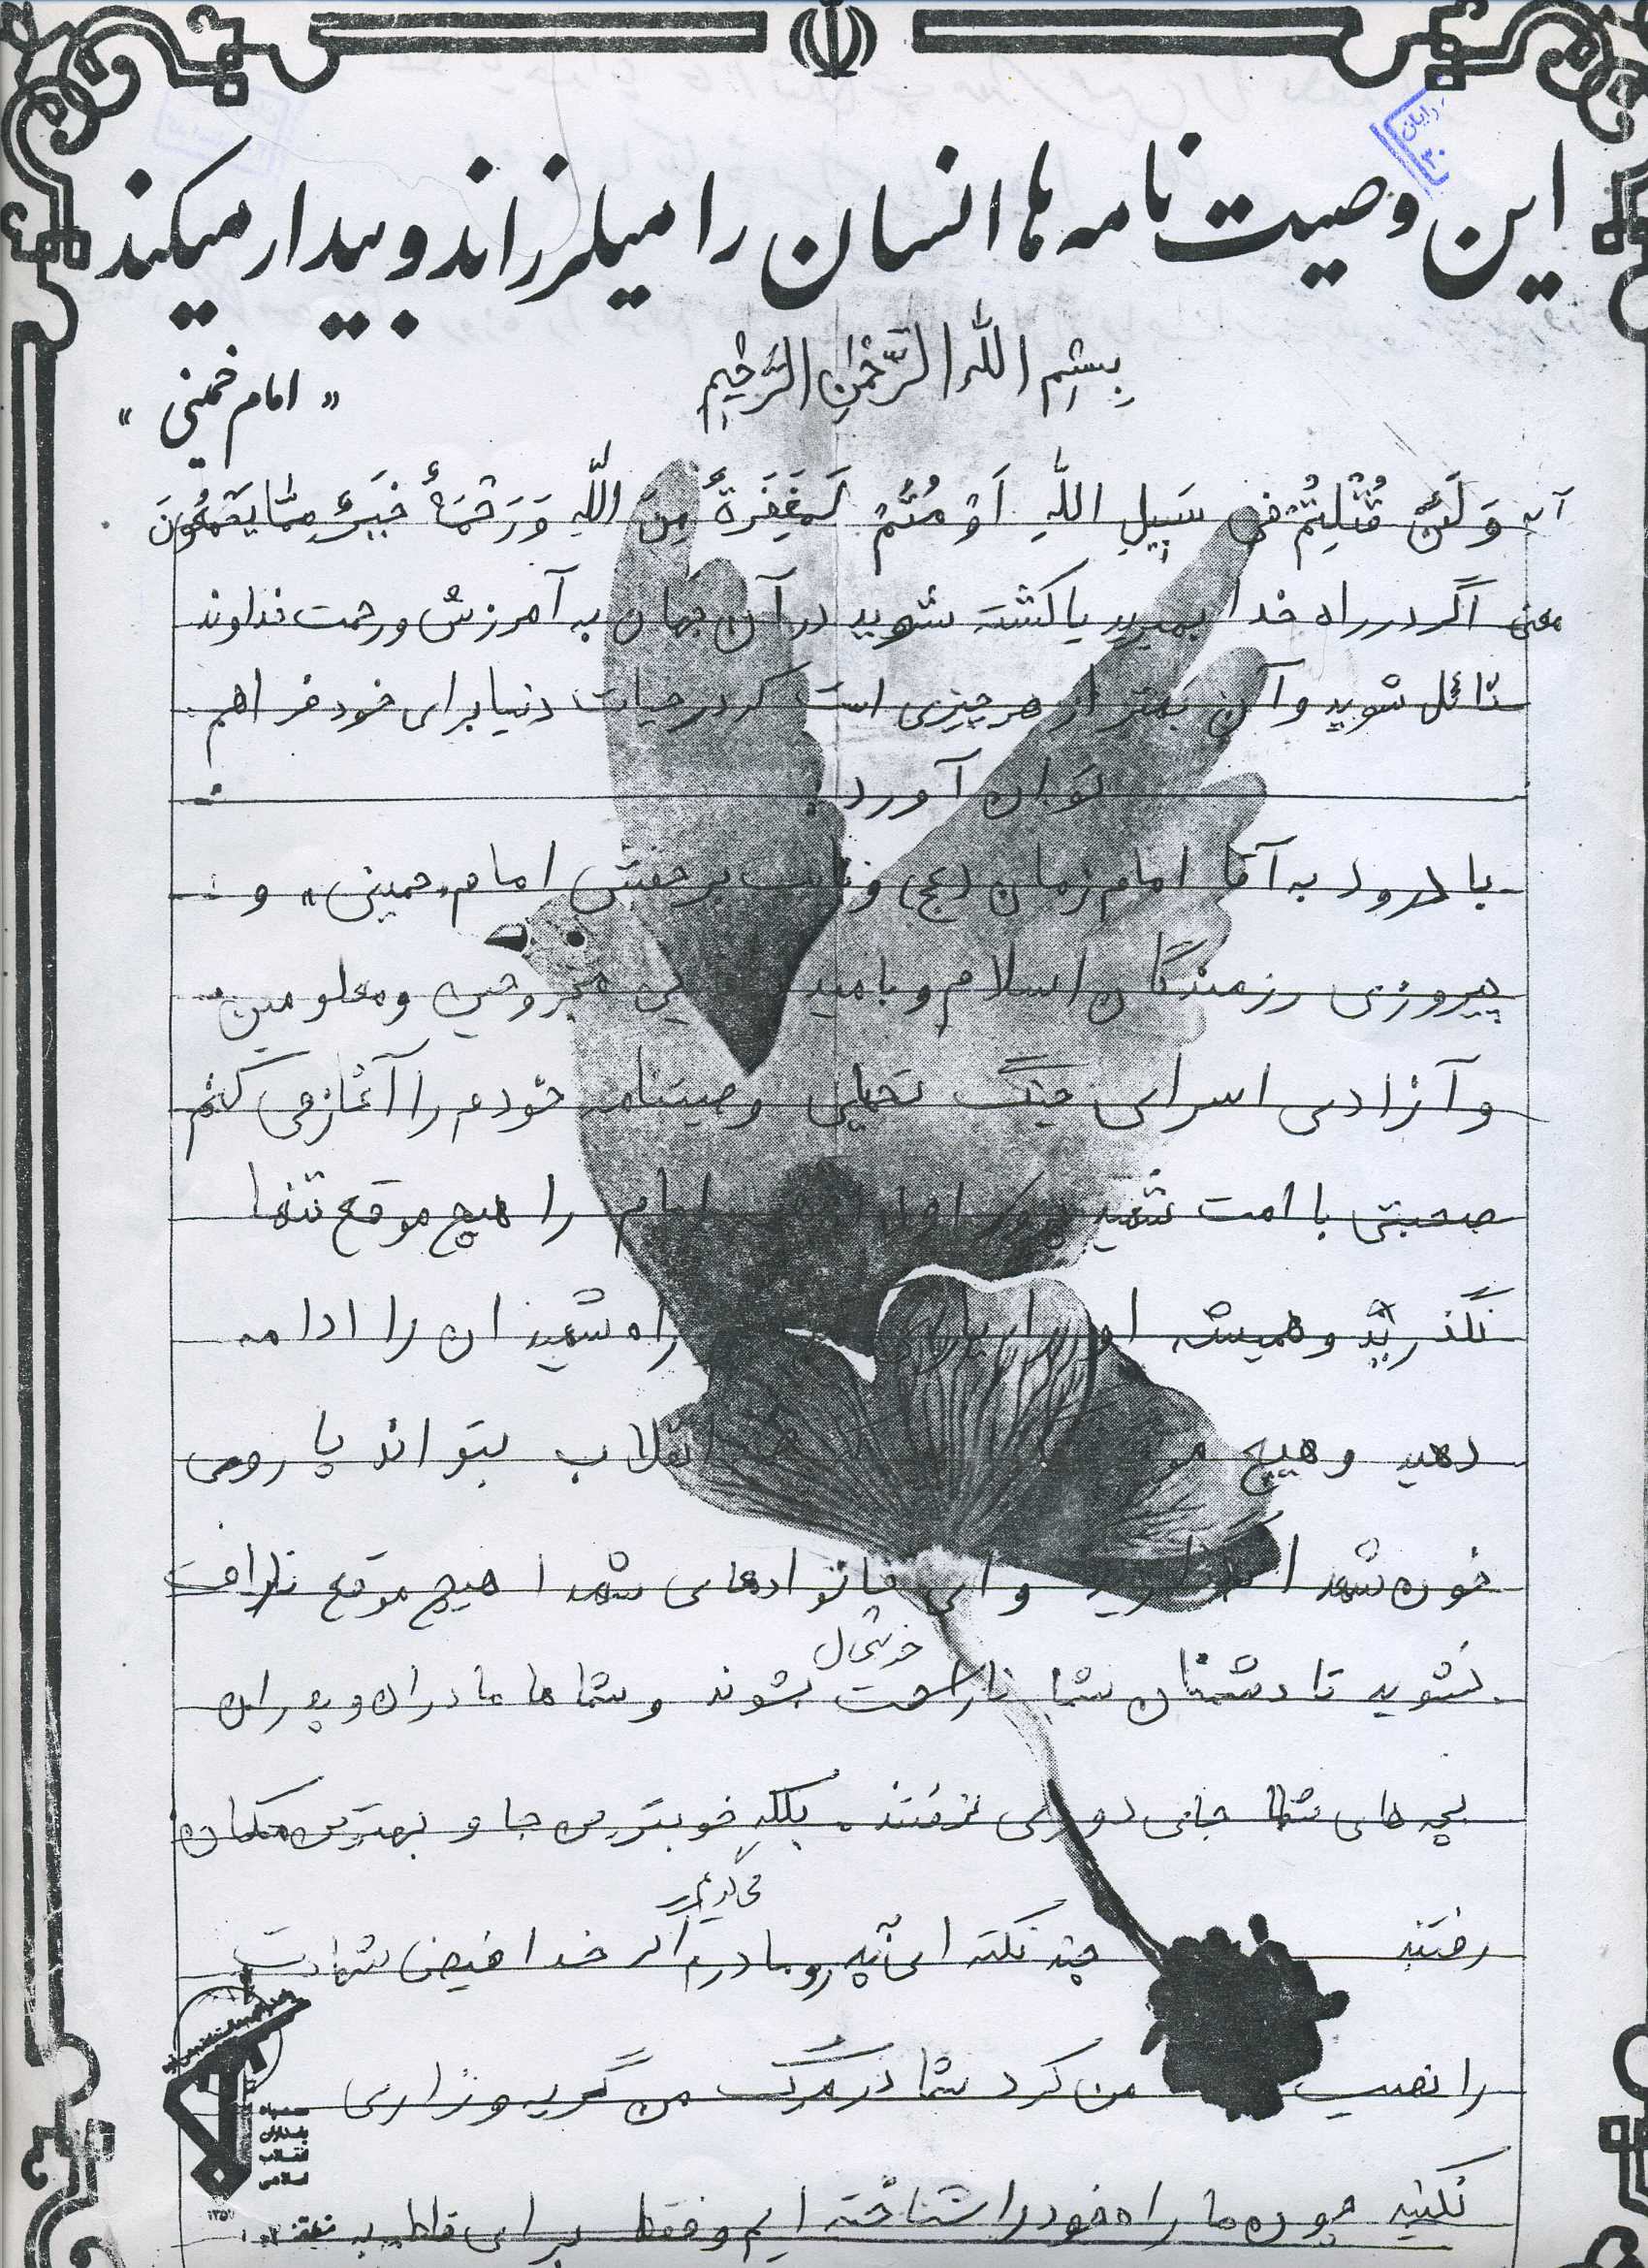 این وصیت نامه ها انسان را میلرزاند و بیدار میکند
« امام خمینی »
بِسْمِ اللّٰهِ الرَّحْمٰنِ الرَّحیِمِ
وَ لَئِنْ قُتْلِتُمْ فی سَبیلِ اللّهِ اَوْ مُتُّمْ لَمَغْفِرَةٌ مِنَ اللّهِ وَ رَحْمَةٌ خَیْرٌ مِمّا یَجْمَعُونَ
معنی اگر در راه خدا بمیرید یا کشته شوید در آن جهان به آمرزش و رحمت خداوند
نائل شوید و آن بهتر از هر چیزی است که در حیات دنیا برای خود فراهم
توان آورد.
با درود به آقا امام زمان (عج) و نایب برحقش امام خمینی و
پیروزی رزمندگان اسلام و بامید مجروحین و معلولین
و آزادی اسرای جنگ تحمیلی وصیتنامه خودم را آغاز می کنم
صحبتی با امت شهید پرور امام را هیچ موقع تنها
نگذارید و همیشه او را یاری راه شهیدان را ادامه
دهید و هیچ انقلاب بتواند پا روی
خون شهدا و ای خانوادهای شهدا هیچ موقع ناراحت
نشوید تا دشمنان شما خوشحال بشوند و شماها مادران و پدران
بچه های شما جای دوری نرفتند. بلکه خوبترین جا و بهترین مکان
رفتند چند نکته ای به پدر و مادرم می گویم اگر خدا فیض شهادت
را نصیب من کرد شما در مرگ من گریه و زاری
نکنید چون ما راه خود را شناخته ایم و فقط برای
سپاه
پاسداران
انقلاب
اسلامی